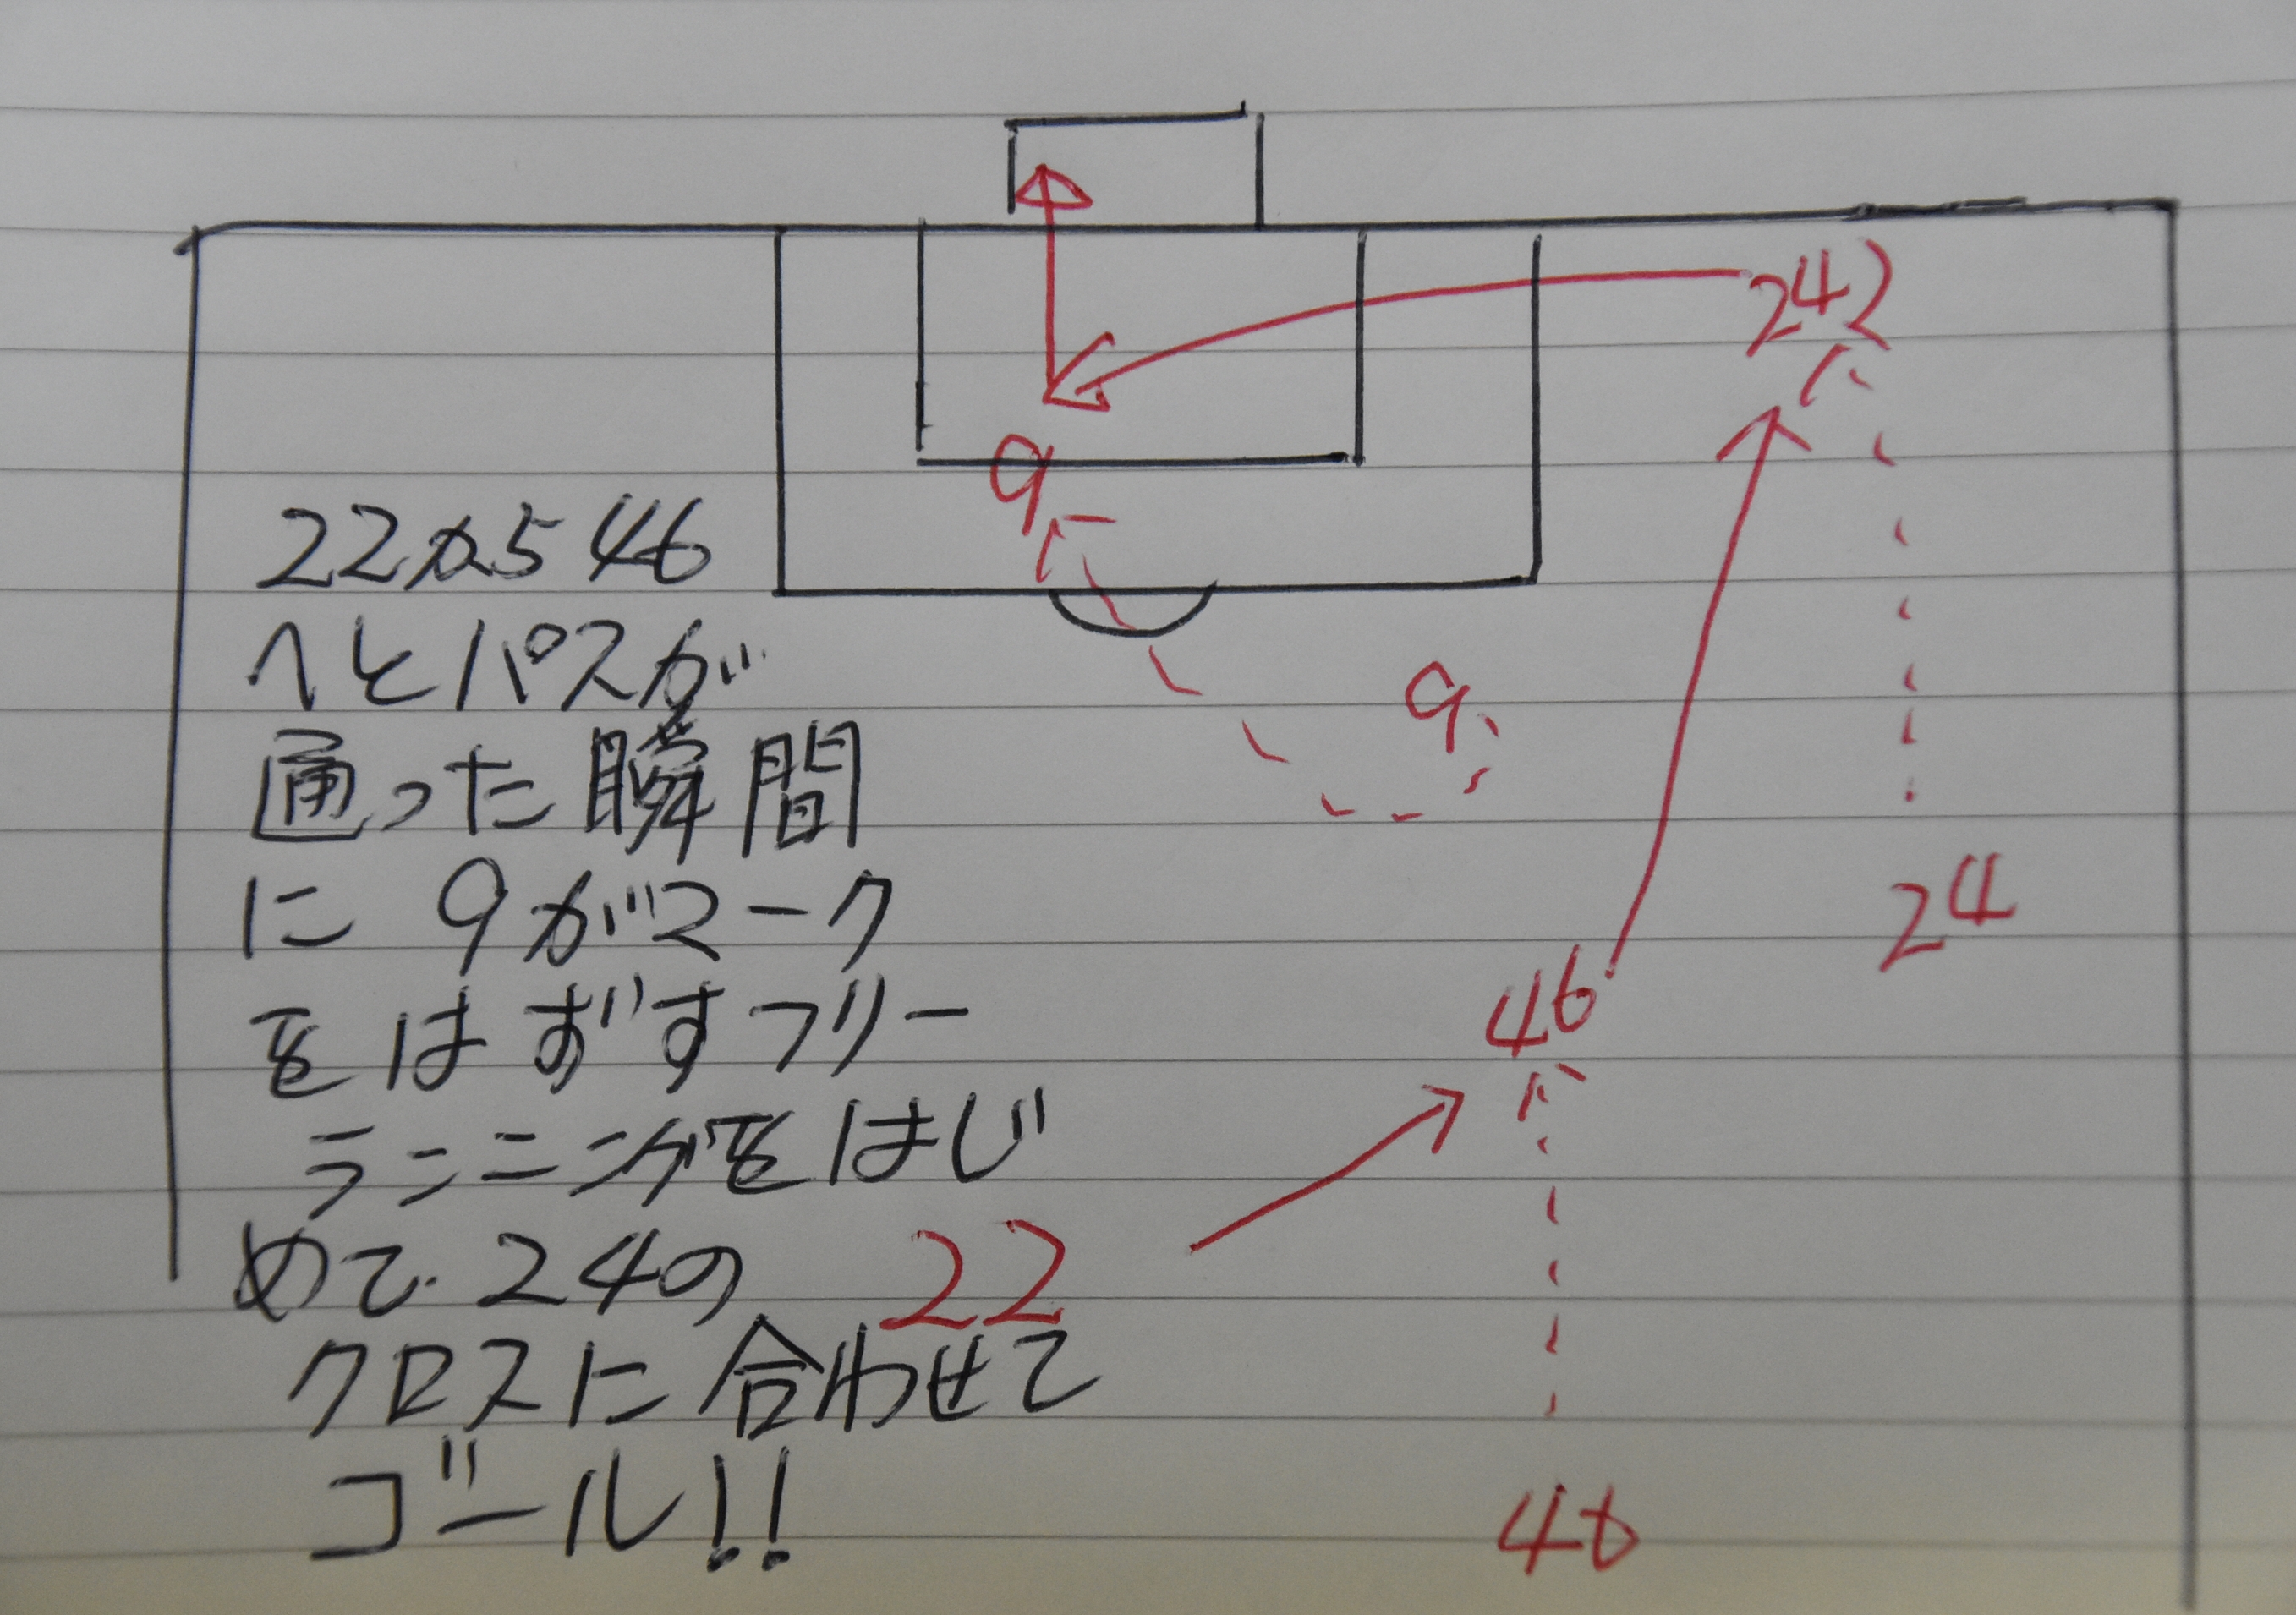 242
9
22から46
へとパスが
9
通った瞬間
24
に 9がマーク
46
をはずすフリー
ランニングをはじ
めて. 24の
22
クロスに合わせて
ゴール!!
46